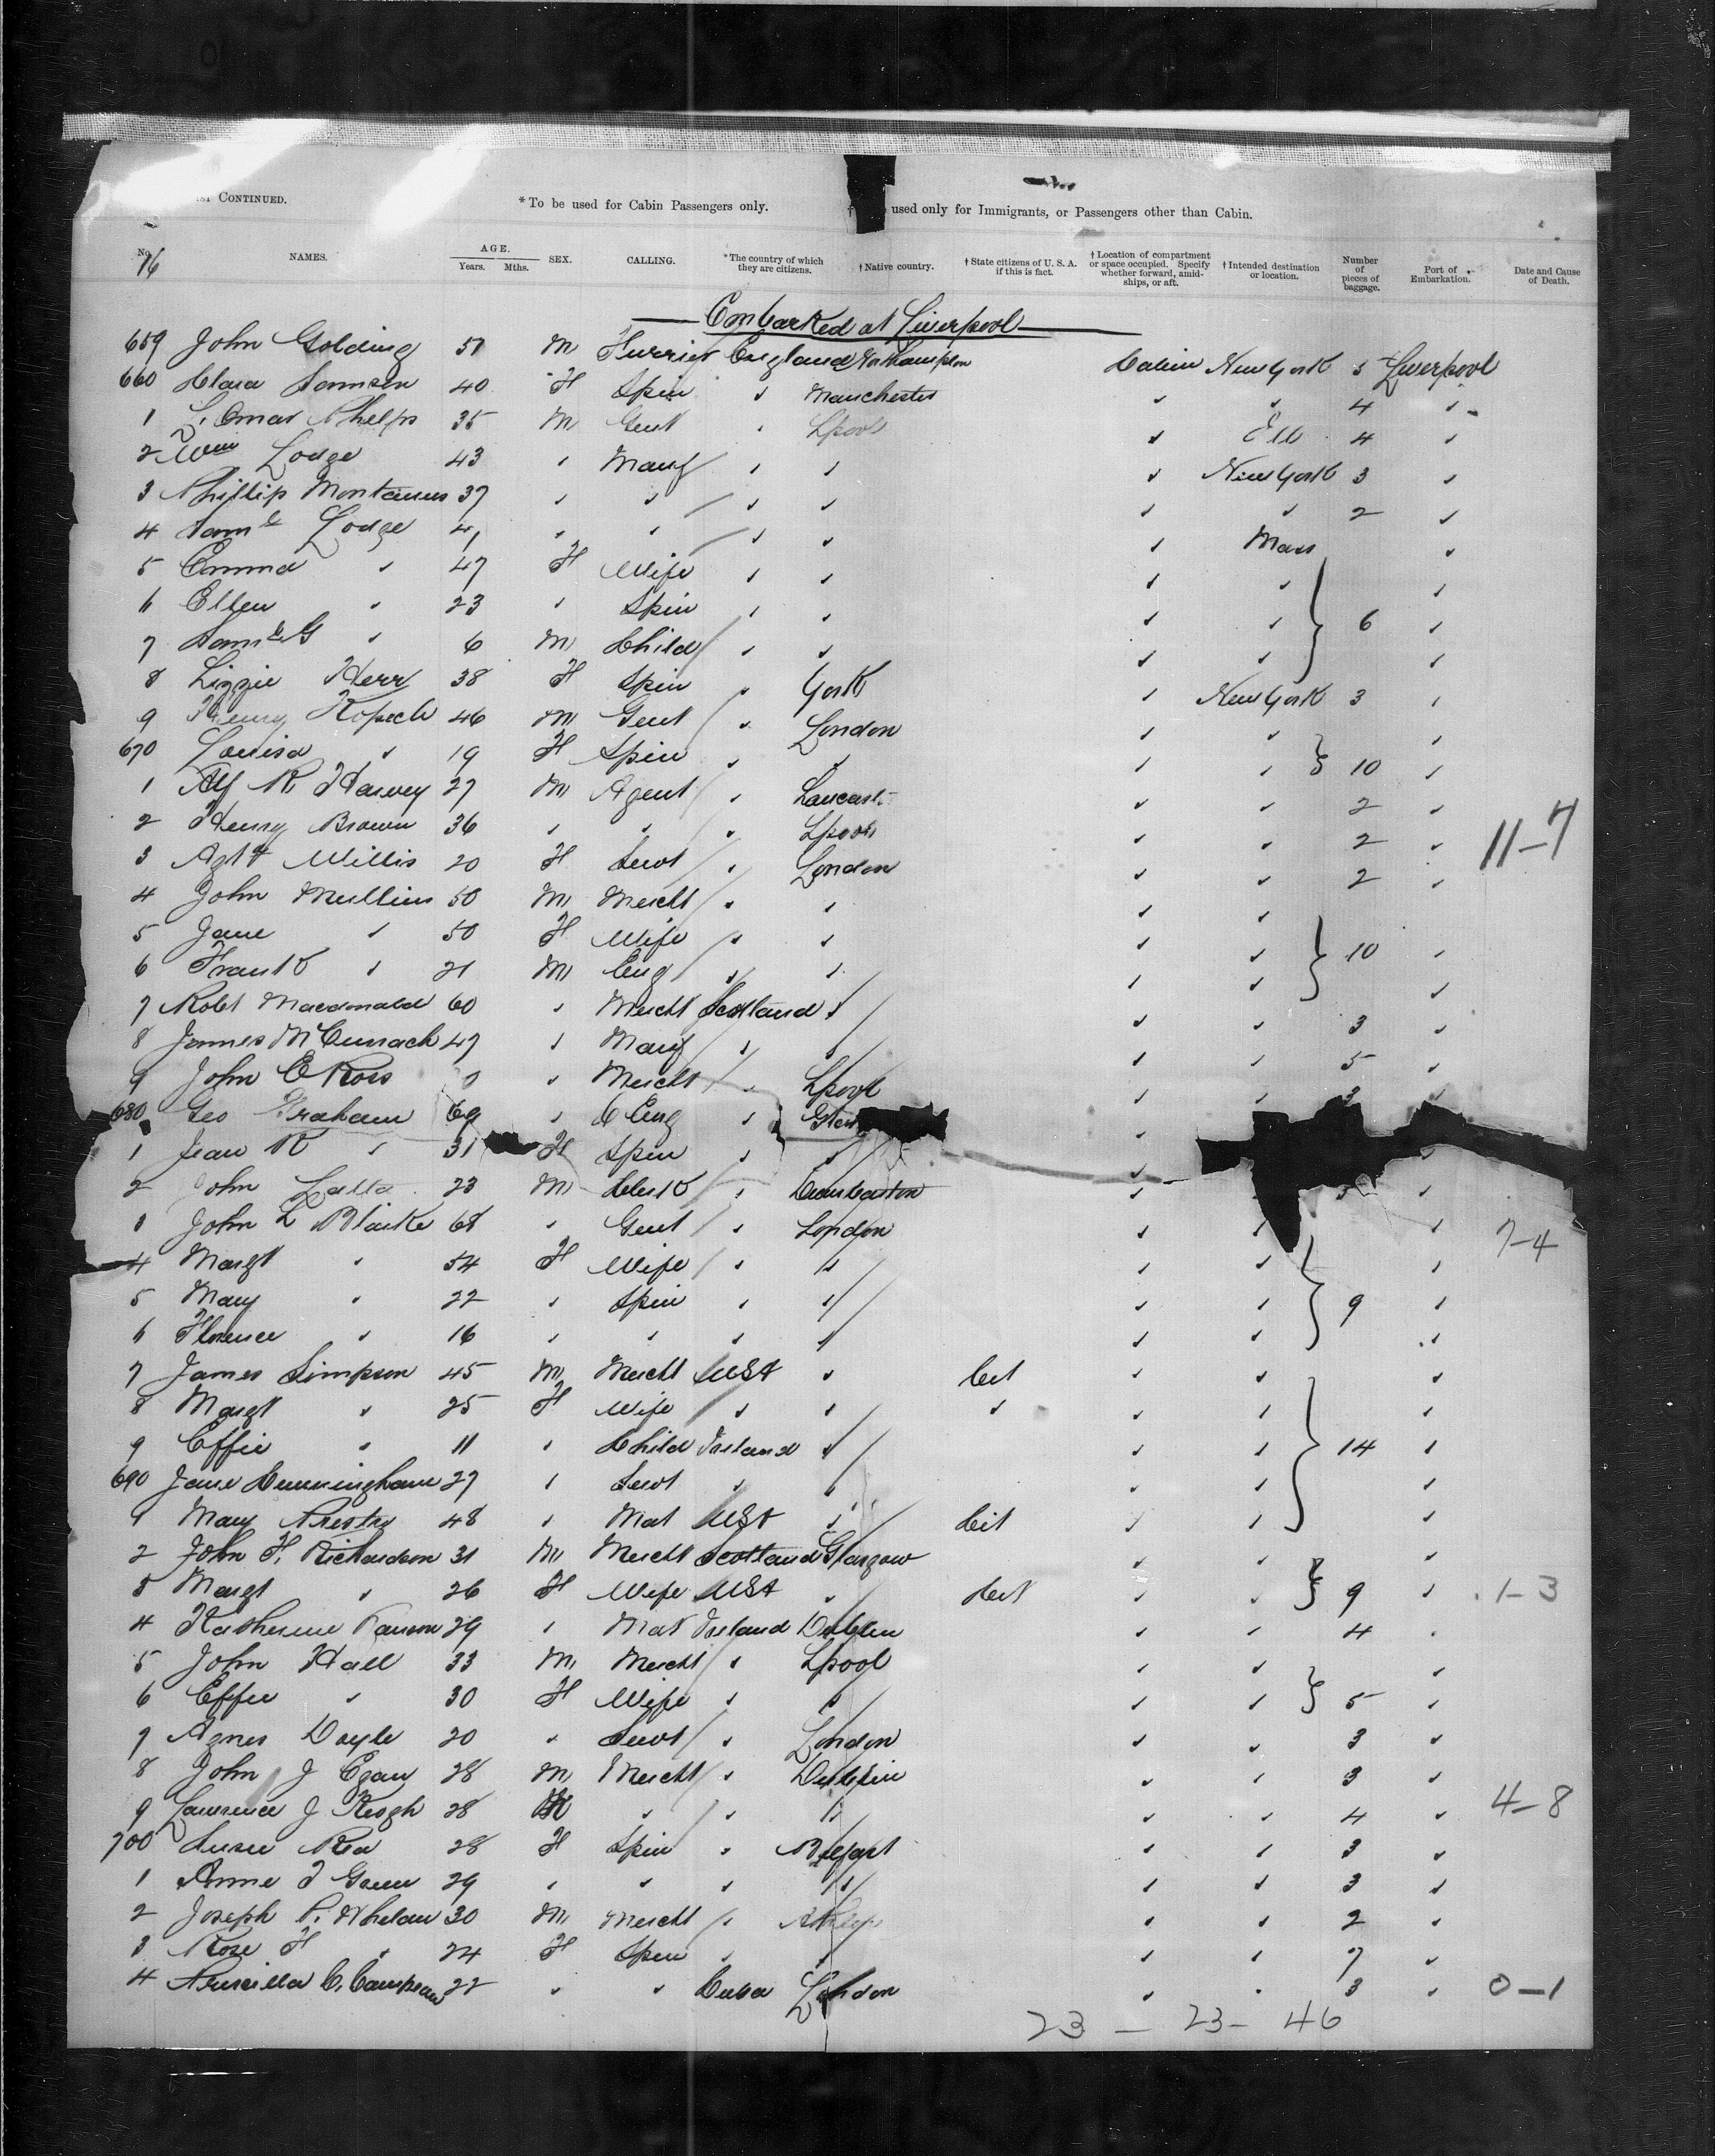 CONTINUED. *To be used for Cabin Passengers only. used only for Immigrants, or Passengers other than Cabin.
No. NAMES. AGE. Years. Mths. SEX. CALLING. *The country of which they are citizens. †Native country. †State citizens of U. S. A. if this is fact. †Location of compartment or space occupied. Specify whether forward, amidships, or aft. †Intended destination or location. Number of pieces of baggage. Port of Embarkation. Date and Cause of Death.
16
Embarked at Liverpool
659 John Golding 51 M Furrier England Northampton Cabin New York 3 Liverpool
660 Clara 40 F Spin " Manchester " " 4 "
1 Phelps 35 M Gent " Lpool " 4 "
2 Wm Lodge 43 " Manf " " " New York 3 "
3 Phillip 37 " " " " " " 2 "
4 Saml Lodge 41 " " " " " Mass "
5 Emma " 47 F Wife " " " " "
6 Ellen " 23 " Spin " " " " 6 "
7 Saml G " 6 M Child " " " " "
8 Lizzie Herr 38 F Spin " York " New York 3 "
9 Henry 46 M Gent " London " " "
670 Louisa " 19 F Spin " " " " 10 "
1 Alf R Harvey 27 M Agent " " " 2 "
2 Henry Brown 36 " " " Lpool " " 2 "
3 Willis 20 F Servt " London " " 2 "
4 John Mullins 50 M Mercht " " " "
5 Jane " 50 F Wife " " " " 10 "
6 Frank " 21 M Eng " " " " "
7 Robt Macdonald 60 " Mercht Scotland " " " 3 "
8 James McCurrach 47 " Manf " " " " 5 "
9 John E Ross " Mercht " Lpool " " 3 "
680 Geo Graham 69 " C Eng " "
1 Jean R " 31 F Spin " " " "
2 John Latta 23 M Clerk " Dumbarton " " "
3 John L Blaike 68 " Gent " London " " "
4 Margt " 54 F Wife " " " " "
5 Mary " 22 " Spin " " " " 9 "
6 Florence " 16 " " " " " " "
7 James Simpson 45 M Mercht USA " Cit " " "
8 Margt " 25 F Wife " " " " " "
9 Effie " 11 " Child Ireland " " " 14 "
690 Jane Cunningham 27 " Servt " " " " "
1 Mary Prestry 48 " Mat USA " Cit " " "
2 John F. Richardson 31 M Mercht Scotland Glasgow " " "
3 Margt " 26 F Wife USA " Cit " " 9 "
4 Katherine 29 " Mat Ireland Dublin " " 4 "
5 John Hall 33 M Mercht " Lpool " " "
6 Effie " 30 F Wife " " " " 5 "
7 Agnes Doyle 20 " Servt " London " " 3 "
8 John J Egan 28 M Mercht " Dublin " " 3 "
9 Lawrence J Keogh 28 M " " " " " 4 "
700 Susie Rea 28 F Spin " Belfast " " 3 "
1 Anne T Green 29 " " " " " " 3 "
2 Joseph P. Whelan 30 M Mercht " " " 2 "
3 Rose F " 24 F Spin " " " " 7 "
4 Priscilla C. 22 " " Cuba London " " 3 "
11-7
7-4
1-3
4-8
0-1
23 - 23 - 46